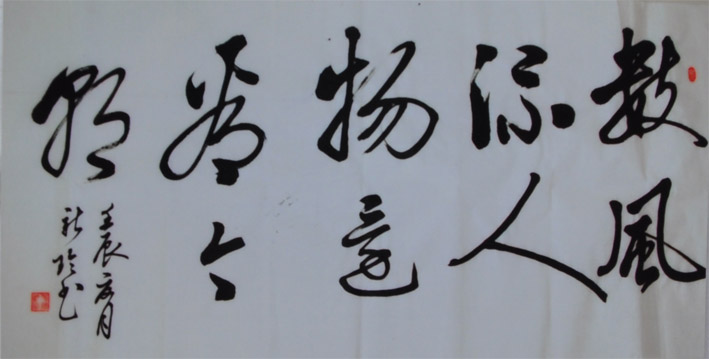 數風
流人
物還
看今
朝
壬辰
書